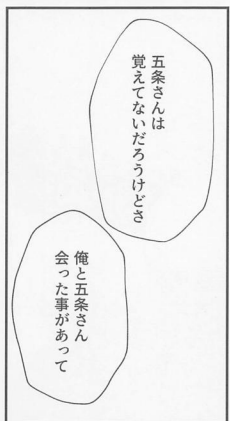 五条さんは
覚えてないだろうけどさ
俺と五条さん
会った事があって